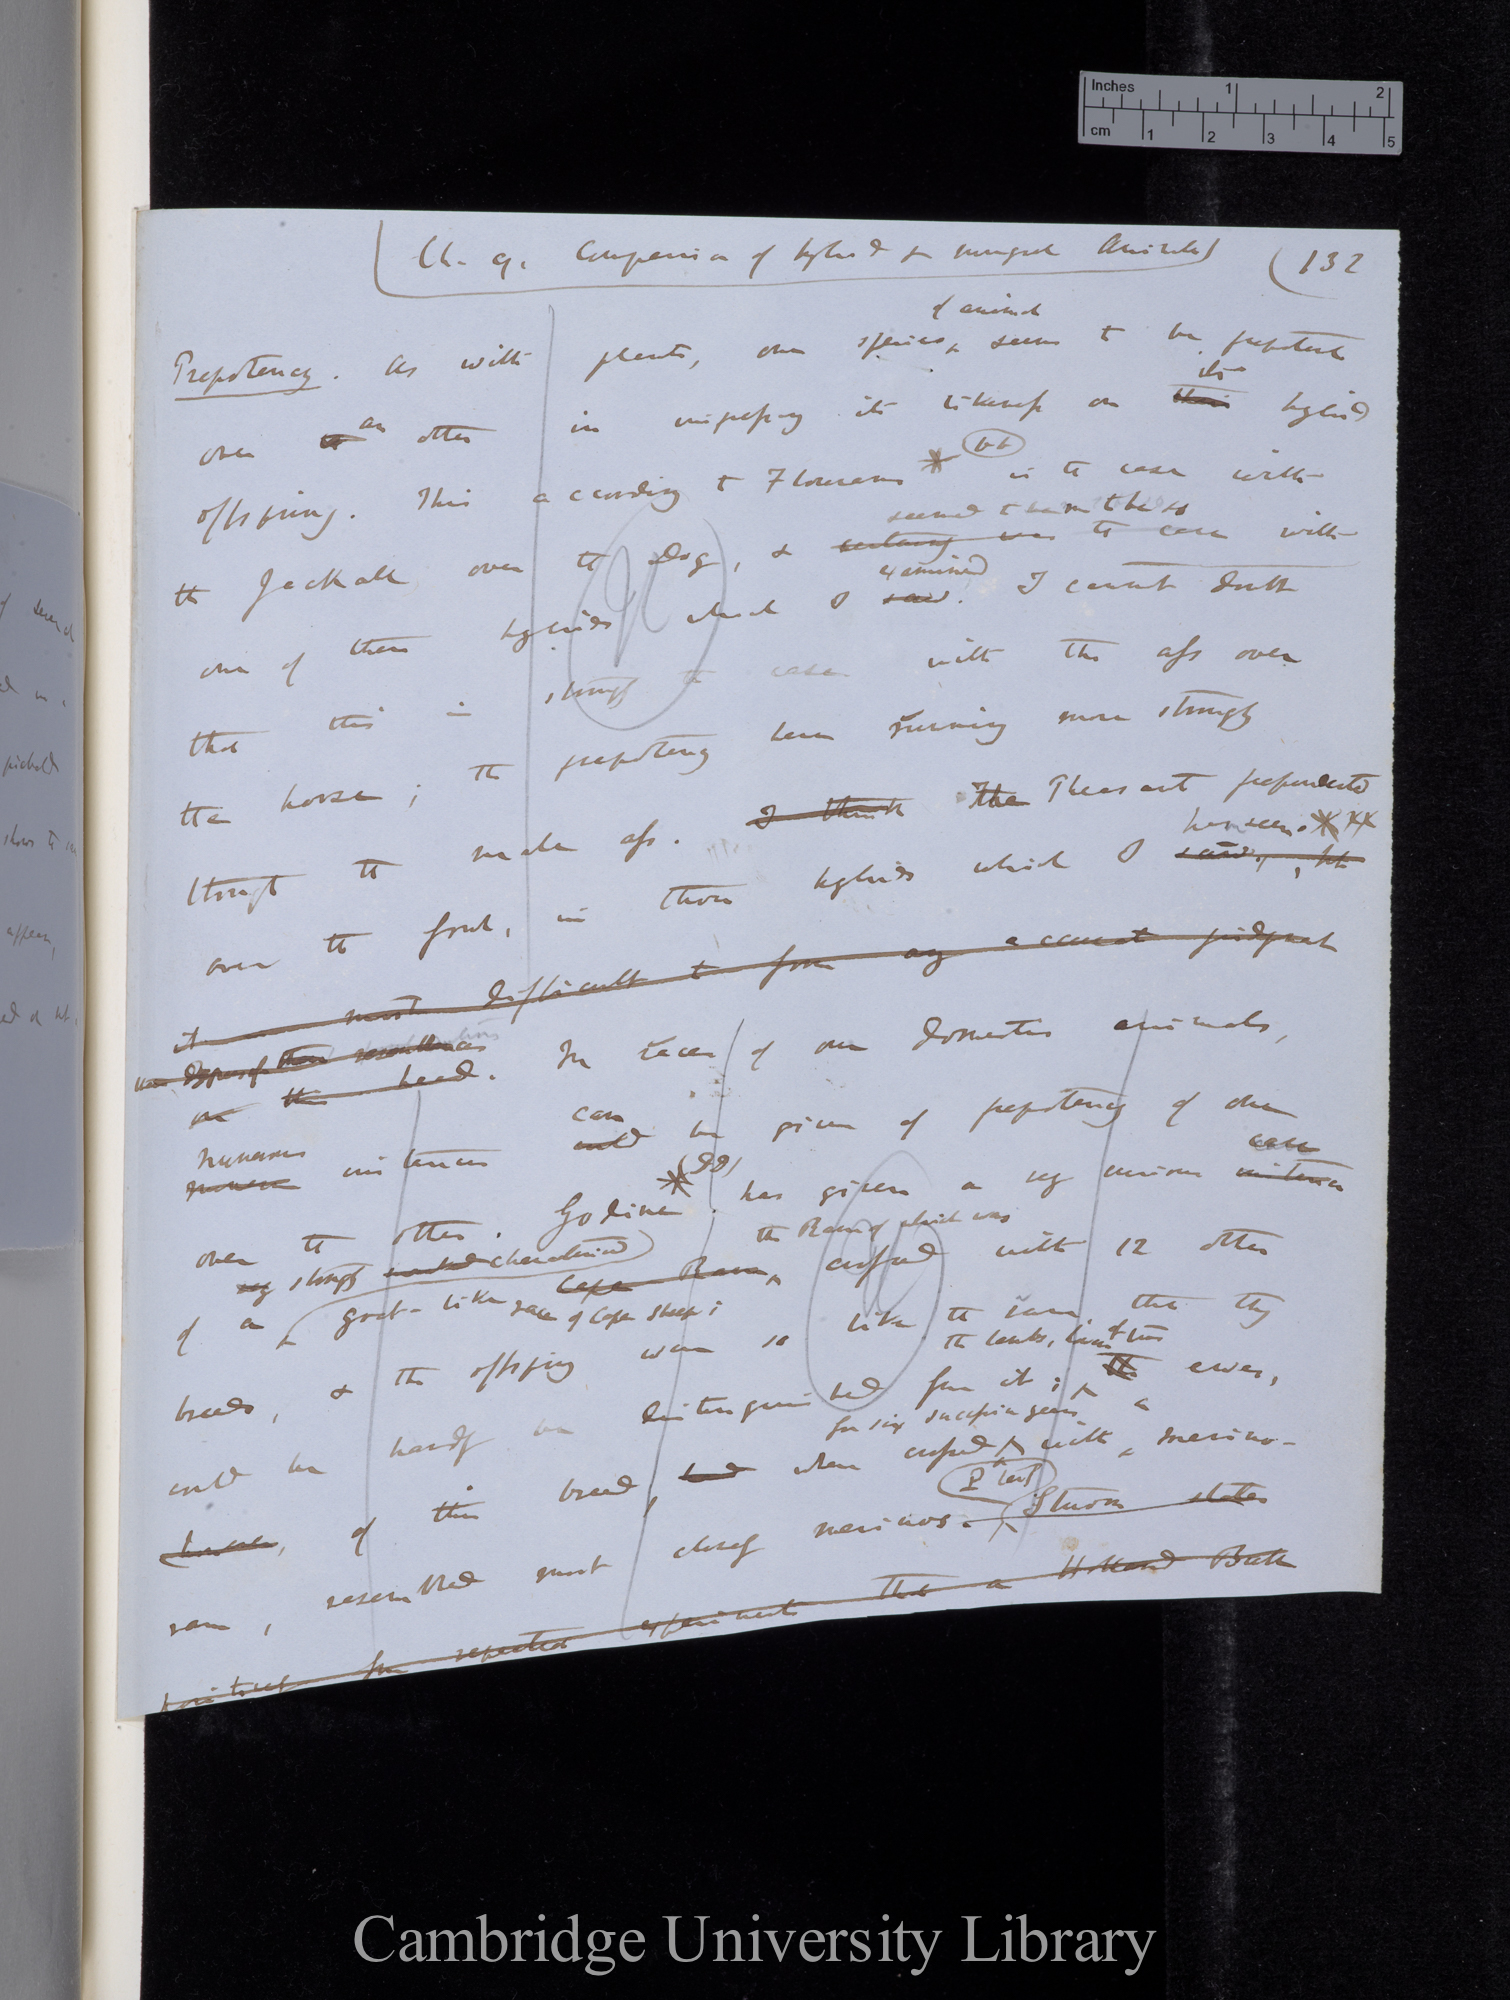 Inches 1 2
cm 1 2 3 4 5
(Ch. 9. Comparison of hybrid & mongrel Animals)
(132
of animals
Prepotency. As with plants, one species, seems to be prepotent
its
over the an other in impressing its likeness on their hybrid
offspring. This according to Flourens * (bb) is the case with
seemed to be so
the Jackall over the dog, & certainly was the case with
examined
one of these hybrids which I saw. I cannot doubt
that this is strongly the case with the ass over
the horse; the prepotency here running more strongly
through the male ass. I think The Pheasant preponderates
have seen.
over the fowl, in those hybrids which I saw,
it most difficult to form any accurate judgment
on the head. In races of our domestic animals,
numerous can
instances could be given of prepotency of one
case
over the other. Godine * (dd) has given a very curious instance
very strongly marked characterised the Ram of which was
of a goat-like race of Cape sheep; Cape Ram, crossed with 12 other
breeds, & the offspring were so like the same that they
the lambs, from two
could be hardly be distinguished from it; the ewes,
for six succession years a
of this breed, when crossed with merino-
(P text)
ram, resembled most closely merinos. Sturm states
positively from repeated experiments that a Holland Bull
Cambridge University Library